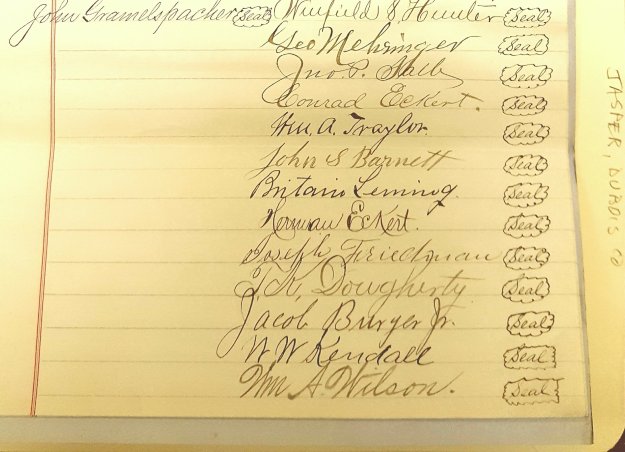 John Gramelspacher Seal Winfield S Hunter Seal
Geo Mehringer Seal
Jno. P. Salb Seal
Conrad Eckert. Seal
Wm. A. Traylor. Seal
John S Barnett Seal
Britain Leming. Seal
Herman Eckert. Seal
Joseph Friedman Seal
Dougherty Seal
Jacob Burger Jr. Seal
W W Kendall Seal
Wm A. Wilson. Seal
JASPER, DUBOIS CO